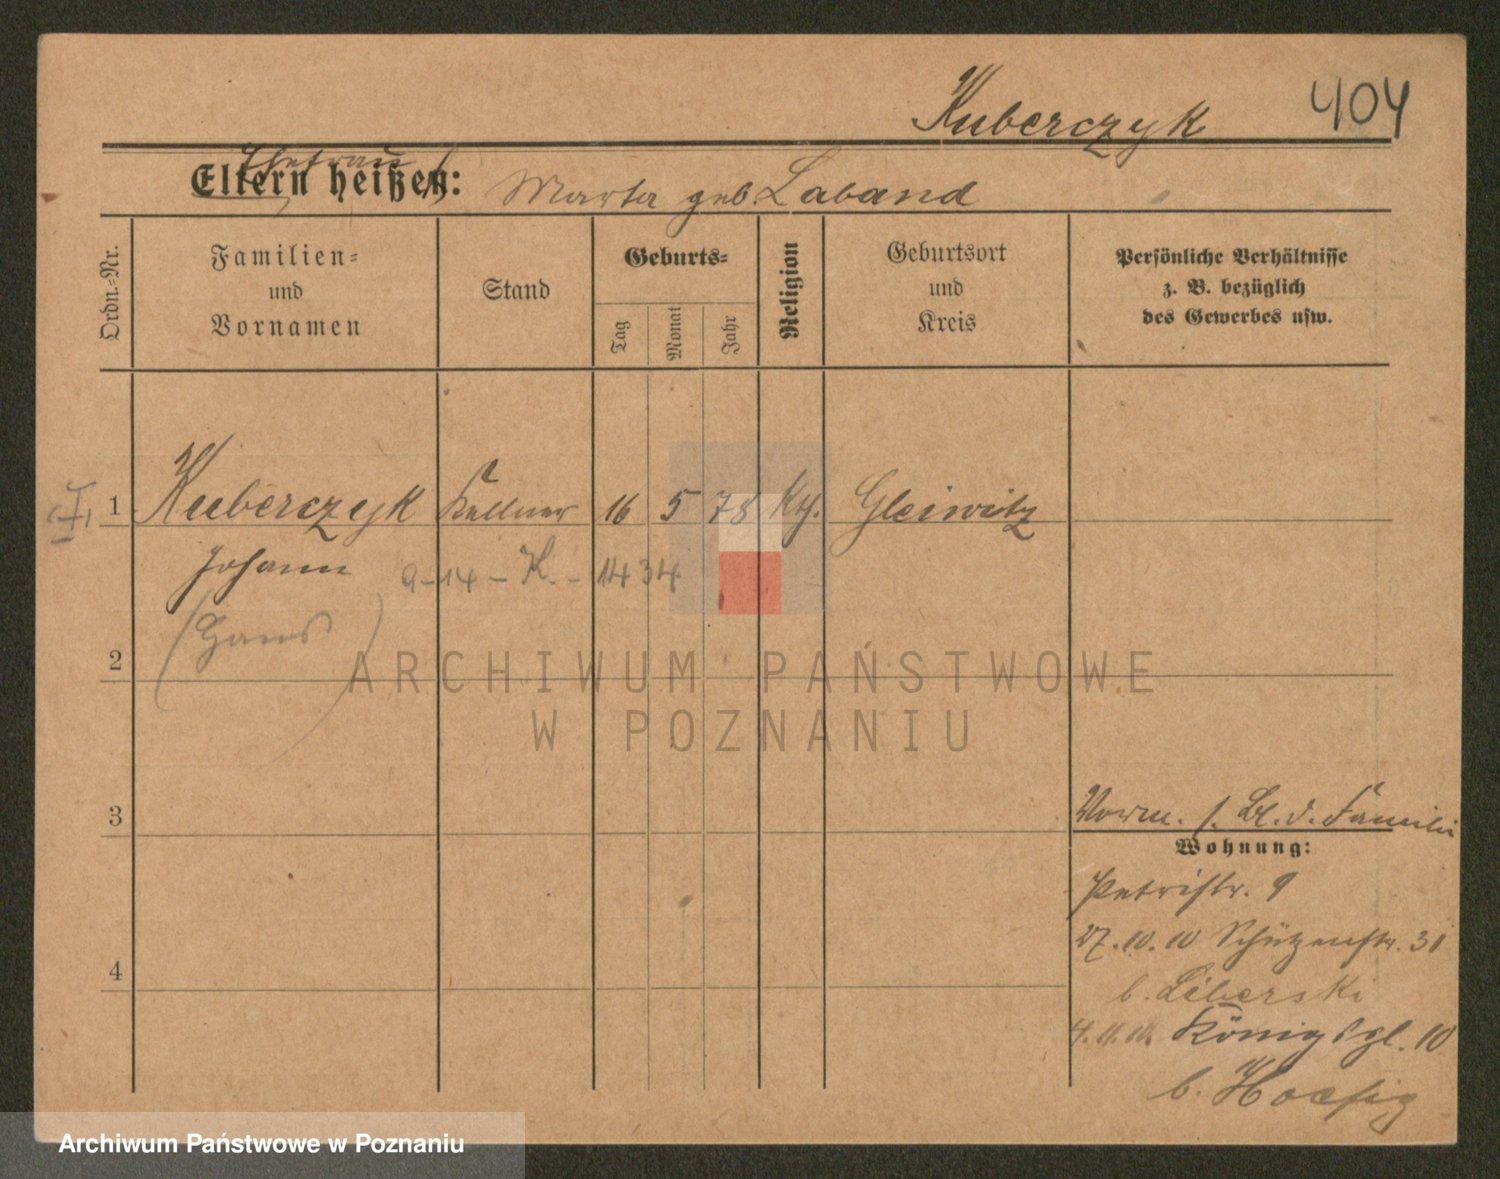 Kuberczyk 404
Ehefrau
Eltern heißen: Marta geb. Laband
Ordn.-Nr.
Familien-
und
Vornamen
Stand
Geburts-
Tag
Monat
Jahr
Religion
Geburtsort
und
Kreis
Persönliche Verhältnisse
z. B. bezüglich
des Gewerbes usw.
I 1 Kuberczyk Kellner 16 5 78 Kth. Gleiwitz
Johann 9-14-K.-1434
(Hans)
2
ARCHIWUM PAŃSTWOWE
W POZNANIU
3
Vorm. s. Bl. d. Familie
Wohnung:
Petristr. 9
27.10.10 Schützenstr. 31
4
b. Liberski
4.11.10. Königspl. 10
b.
Archiwum Państwowe w Poznaniu